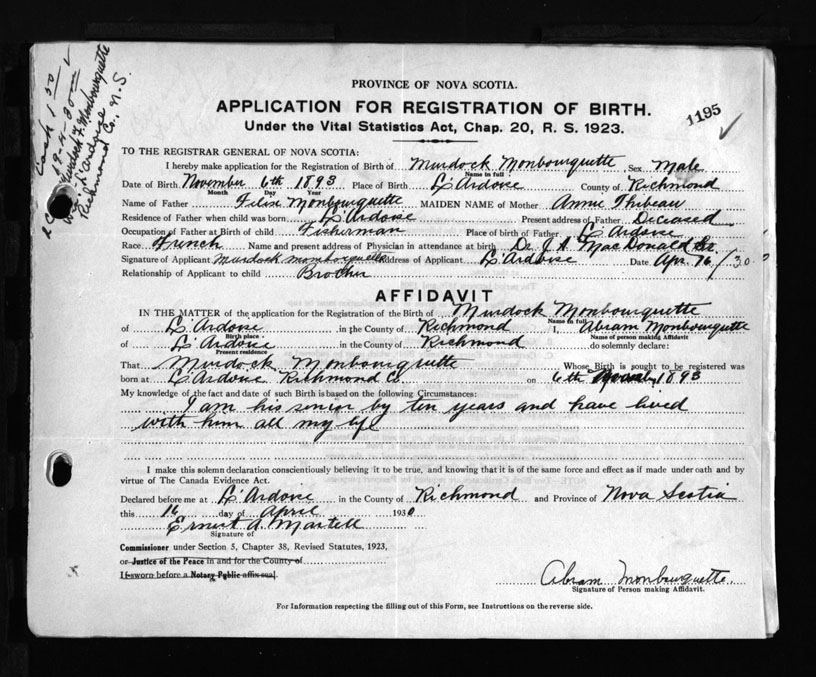 Cash 1 50
19-4-30
Murdock F. Monbourquette
L'Ardoise
Richmond Co., N.S.
PROVINCE OF NOVA SCOTIA.
APPLICATION FOR REGISTRATION OF BIRTH.
1195
Under the Vital Statistics Act, Chap. 20, R. S. 1923.
TO THE REGISTRAR GENERAL OF NOVA SCOTIA:
I hereby make application for the Registration of Birth of Murdock Monbourquette Sex Male
Name in full
Date of Birth November 6th 1893 Place of Birth L'Ardoise County of Richmond
Month Day Year
Name of Father Felix Monbourquette MAIDEN NAME of Mother Annie Thibeau
Residence of Father when child was born L'Ardoise Present address of Father Deceased
Occupation of Father at Birth of child Fisherman Place of birth of Father L'Ardoise
Race French Name and present address of Physician in attendance at birth Dr. J. A. MacDonald
Signature of Applicant Murdock Monbourquette Address of Applicant L'Ardoise Date Apr 16/30
Relationship of Applicant to child Brother
AFFIDAVIT
IN THE MATTER of the application for the Registration of the Birth of Murdock Monbourquette
Name in full
of L'Ardoise in the County of Richmond I, Abram Monbourquette
Birth place Name of person making Affidavit
of L'Ardoise in the County of Richmond do solemnly declare:
Present residence
That Murdock Monbourquette Whose Birth is sought to be registered was
born at L'Ardoise Richmond Co. on 6th 1893
My knowledge of the fact and date of such Birth is based on the following Circumstances:
I am his senior by ten years and have lived
with him all my life
I make this solemn declaration conscientiously believing it to be true, and knowing that it is of the same force and effect as if made under oath and by
virtue of The Canada Evidence Act.
Declared before me at L'Ardoise in the County of Richmond and Province of Nova Scotia
this 16 day of April 1930
Ernest A. Martell
Signature of
Commissioner under Section 5, Chapter 38, Revised Statutes, 1923,
or Justice of the Peace in and for the County of
If sworn before a Notary Public affix seal.
Abram Monbourquette
Signature of Person making Affidavit.
For Information respecting the filling out of this Form, see Instructions on the reverse side.